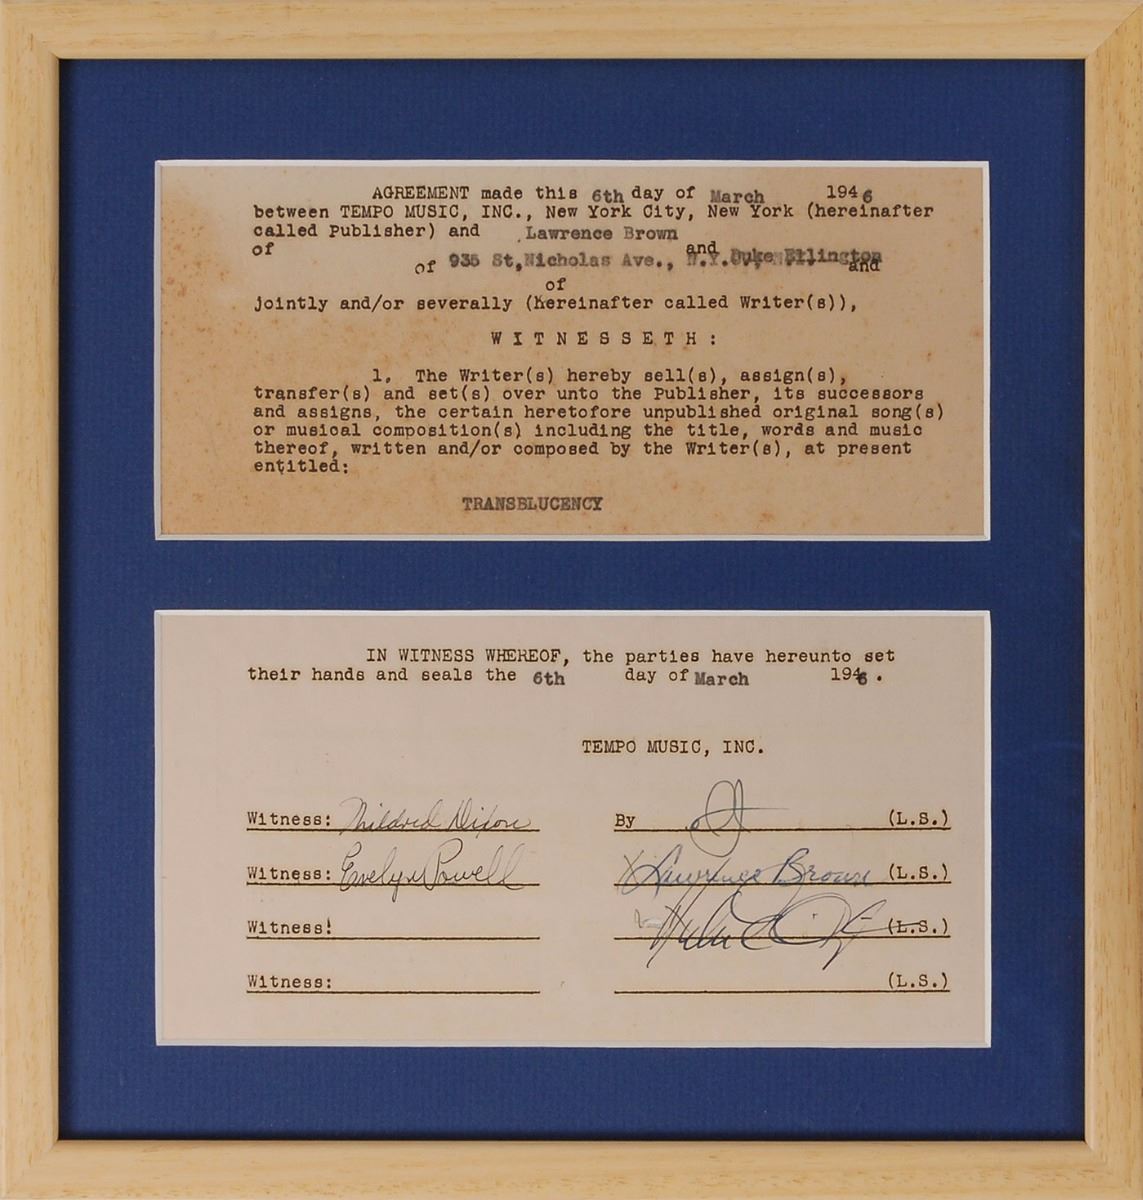 AGREEMENT made this 6th day of March 1946
between TEMPO MUSIC, INC., New York City, New York (hereinafter
called Publisher) and Lawrence Brown
of and
of 935 St,Nicholas Ave., N.Y. Duke Ellington and
of
jointly and/or severally (hereinafter called Writer(s)),
WITNESSETH:
1. The Writer(s) hereby sell(s), assign(s),
transfer(s) and set(s) over unto the Publisher, its successors
and assigns, the certain heretofore unpublished original song(s)
or musical composition(s) including the title, words and music
thereof, written and/or composed by the Writer(s), at present
entitled:
TRANSBLUCENCY
IN WITNESS WHEREOF, the parties have hereunto set
their hands and seals the 6th day of March 1946.
TEMPO MUSIC, INC.
Witness: Mildred Dixon By (L.S.)
Witness: Evelyn Powell Lawrence Brown (L.S.)
Witness: (L.S.)
Witness: (L.S.)